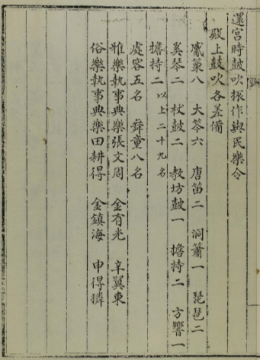 還宮時鼓吹振作與民樂令
殿上鼓吹各差備
觱篥八 大笒六 唐笛二 洞簫一 琵琶二
奚琴二 杖鼓二 敎坊鼓一 擔持二 方響一
擔持二 以上二十九名
處容五名 舞童八名
雅樂執事典樂張文周 金有光 辛翼東
俗樂執事典樂田耕得 金鎮海 申得璘